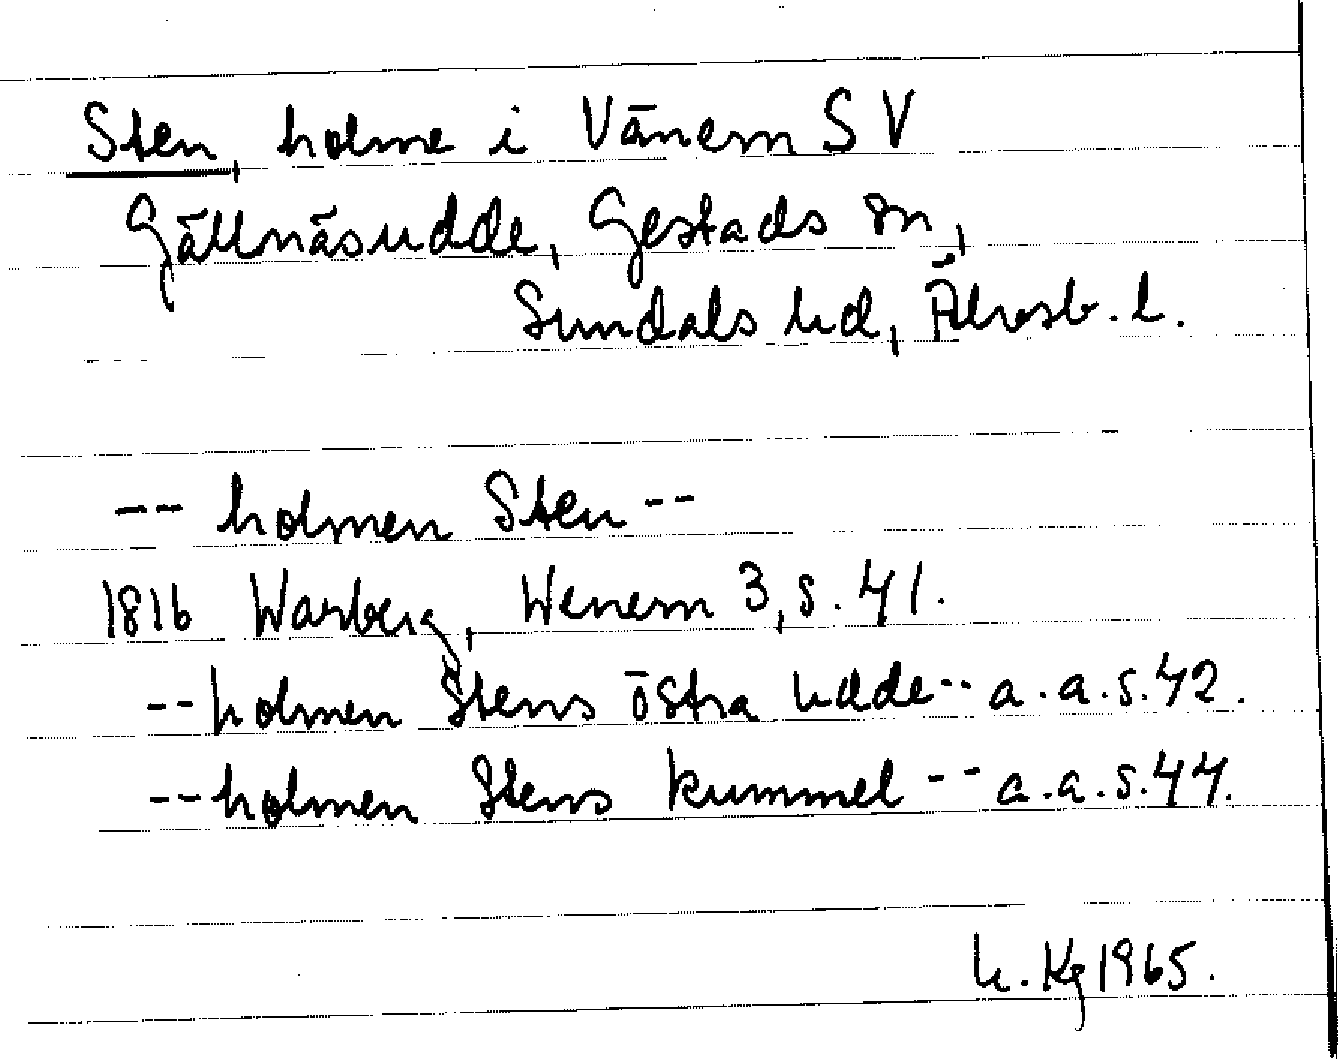 Sten, holme i Vänern SV
Gällnäsudde, Gestads sn,
Sundals hd, Älvsb. l.
-- holmen Sten --
1816 Warberg, Wenern 3, s. 41.
-- holmen Stens östra udde -- a. a. s. 42.
-- holmen Stens kummel -- a. a. s. 44.
K. Kg 1965.